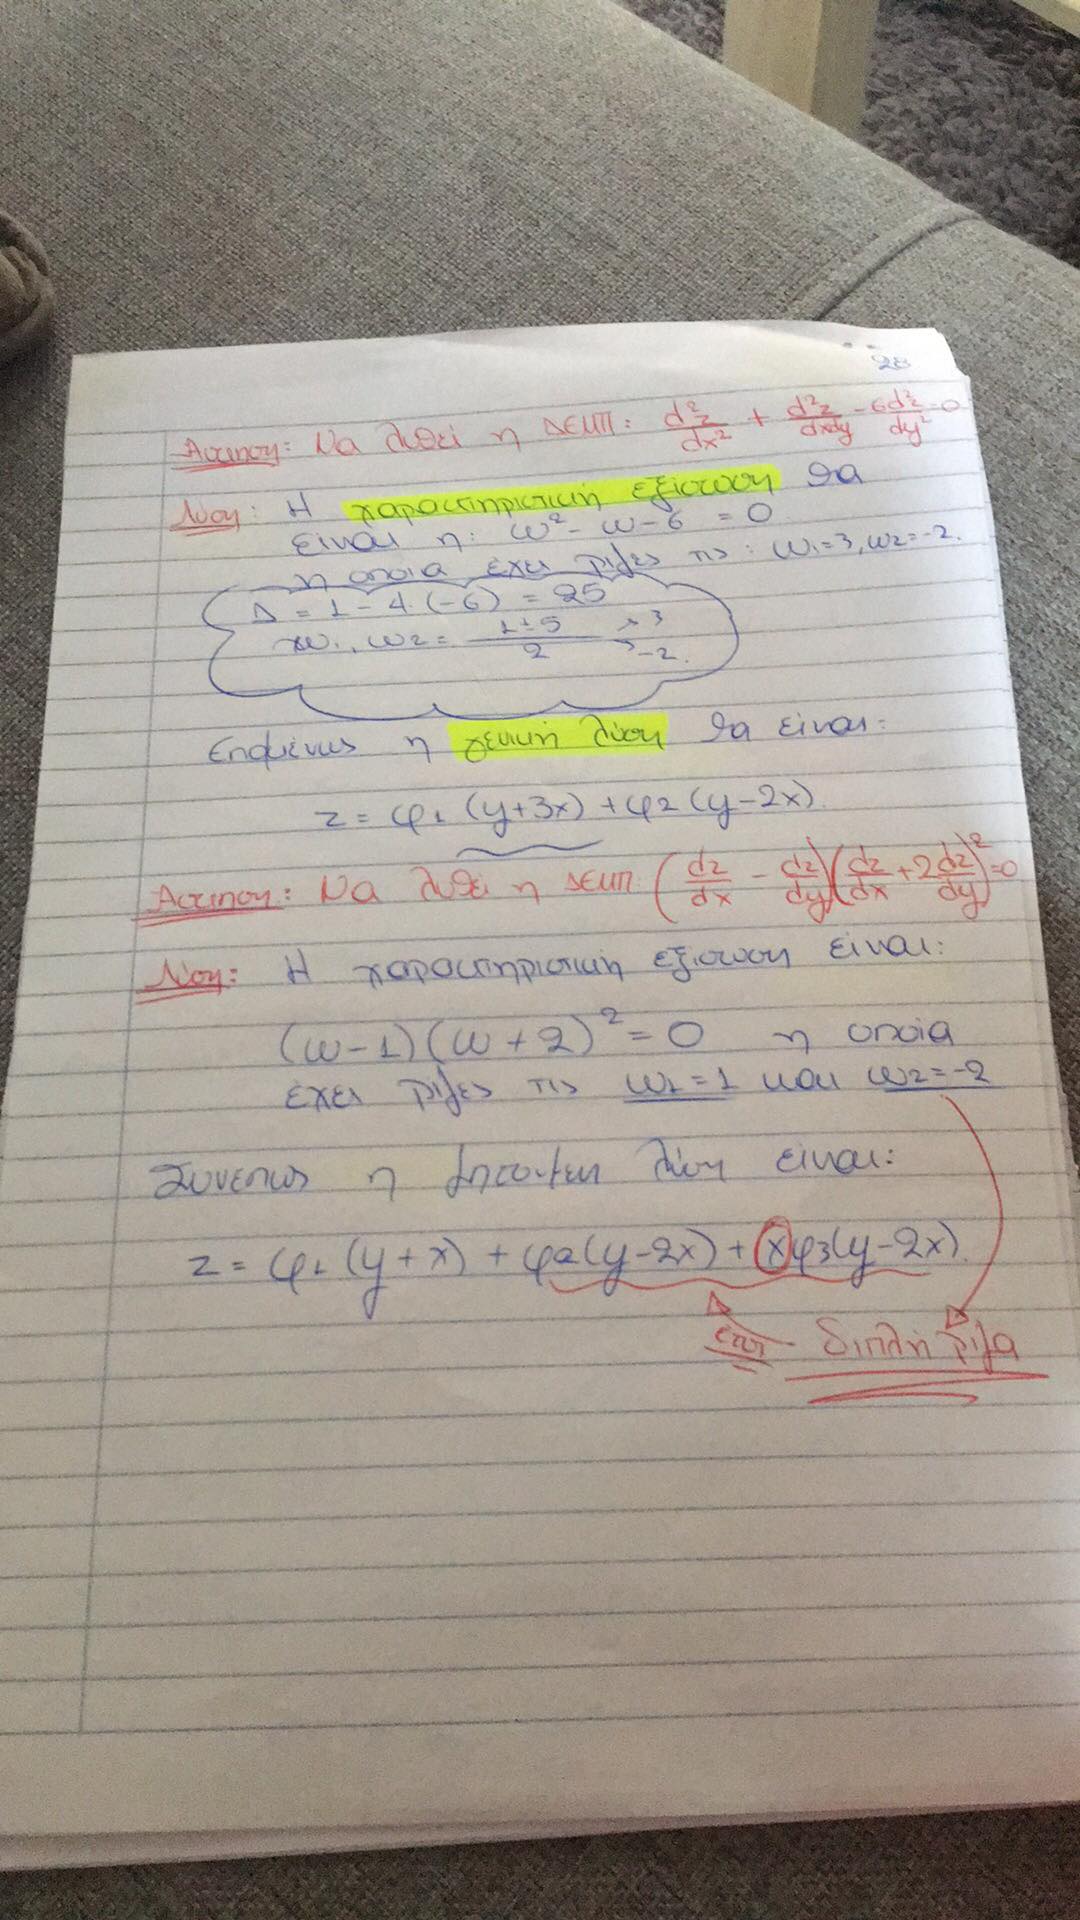 28
Άσκηση: Να λυθεί η ΔΕΜΠ: d²z/dx² + d²z/dxdy - 6d²z/dy² = 0
Λύση: Η χαρακτηριστική εξίσωση θα
είναι η: ω² - ω - 6 = 0
η οποία έχει ρίζες τις: ω₁=3, ω₂=-2.
Δ = 1 - 4·(-6) = 25
ω₁, ω₂ = 1±5/2 → 3 → -2.
Επομένως η γενική λύση θα είναι:
z = φ₁ (y+3x) + φ₂ (y-2x).
Άσκηση: Να λυθεί η ΔΕΜΠ: (dz/dx - dz/dy)(dz/dx + 2dz/dy)² = 0
Λύση: Η χαρακτηριστική εξίσωση είναι:
(ω-1)(ω+2)² = 0 η οποία
έχει ρίζες τις ω₁=1 και ω₂=-2
Συνεπώς η ζητούμενη λύση είναι:
z = φ₁ (y+x) + φ₂(y-2x) + xφ₃(y-2x).
διπλή ρίζα